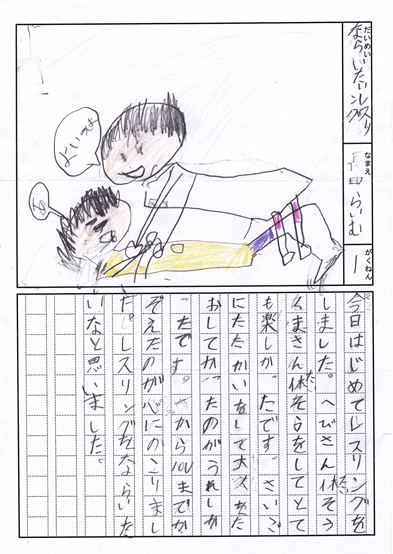 だいめい
ならいたいレスリング
なまえ
らいむ
がくねん
1
よいしょ
今日はじめてレスリングを
しました。へびさん体そう
たい
くまさん体そうをしてとて
たい
も楽しかったです。さいご
にたたかいをして大人をた
おしてかったのがうれしか
ったです。一から10までか
ぞえたのが心にのこりまし
た。レスリングをならいた
いなと思いました。